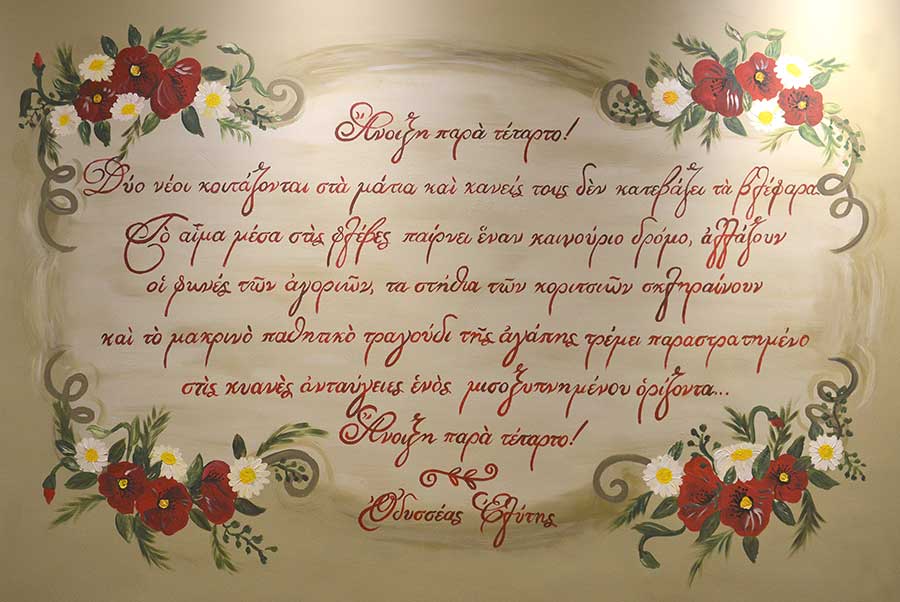 Ἄνοιξη παρὰ τέταρτο!
Δύο νέοι κοιτάζονται στὰ μάτια καὶ κανείς τους δὲν κατεβάζει τὰ βλέφαρα
Τὸ αἷμα μέσα στὰς φλέβες παίρνει ἕναν καινούριο δρόμο, ἀλλάζουν
οἱ φωνές τῶν ἀγοριῶν, τα στήθια τῶν κοριτσιῶν σκληραίνουν
καὶ τὸ μακρινὸ παθητικὸ τραγούδι τῆς ἀγάπης τρέμει παραστρατημένο
στὶς κυανὲς ἀνταύγειες ἑνὸς μισοξυπνημένου ὁρίζοντα...
Ἄνοιξη παρὰ τέταρτο!
Ὀδυσσέας Ἐλύτης